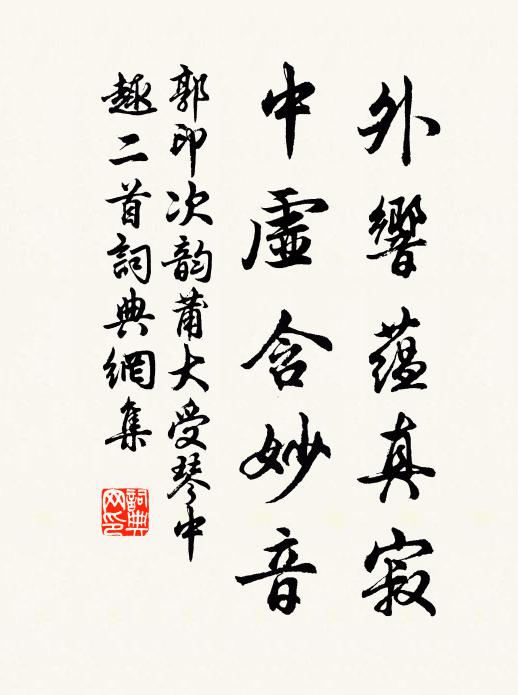 外響蘊真寂
中虛含妙音
郭印次韵蒲大受琴中
趣二首詞典網集
詞典網印